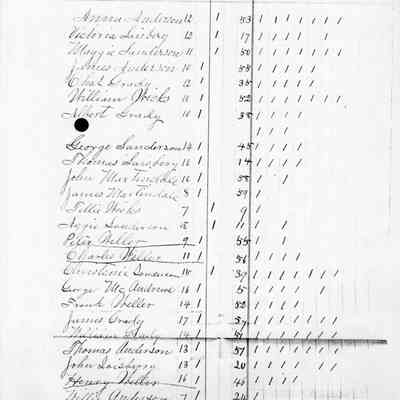 Anna Anderson 12 1 53 / / / / / /
Victoria 12 1 17 / / / /
Maggie Sanderson 11 1 50 / / / / / /
James Anderson 10 1 38 / / / /
Chas Grady 12 1 35 / / / /
William Weeks 11 1 52 / / / / / /
Albert Grady 10 1 35 / / / /
/ / /
George Sanderson 14 1 45 / / / /
Thomas 16 1 14 / / / /
John Martindale 16 1 58 / /
James Martindale 8 1 59 /
Tillie Weeks 7 1 9 /
8 1 11 / /
Peter Weller 9 1 55 /
Charles Weller 11 1 56 / / /
15 1 39 / / / / / / /
George McAndrew 16 1 5 / / / /
Frank Weller 14 1 52 / / /
James Grady 17 1 37 / / / / / /
William 14 1 41 / / / / /
Thomas Anderson 13 1 57 / / / / / / /
John 13 1 20 / / / / /
Henry Weller 16 1 46 / / /
Anderson 7 1 24 /